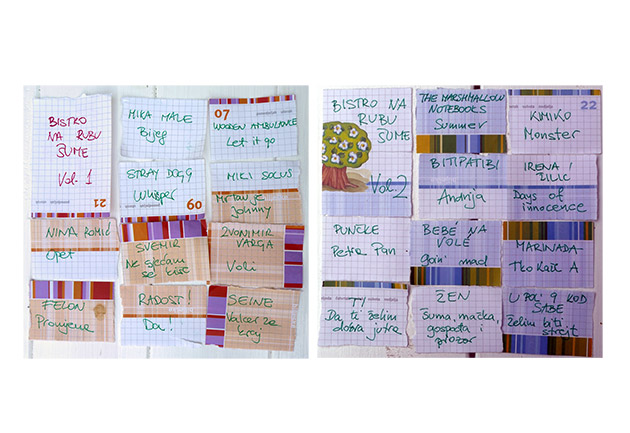 BISTRO
NA
RUBU
ŠUME
Vol. 1
21
MIKA MALE
Bijeg
07
WOODEN AMBULANCE
Let it go
STRAY DOGG
Whisper
09
MIKI SOLUS
Mrtav je
Johnny
NINA ROMIĆ
Opet
SVEMIR
Ne gledam
se više
ZVONIMIR
VARGA
Voli
FELON
Promjena
RADOST!
Da!
SEINE
Valcer za
kraj
BISTRO NA
RUBU
ŠUME
Vol. 2
THE MARSHMALLOW
NOTEBOOKS
Summer
22
KIMIKO
Monster
BITIPATIBI
Andrija
IRENA I
ŽILIĆ
Days of
innocence
PUNČKE
Petar Pan
BEBÈ NA
VOLÈ
Goin' mad
MARINADA
Tko kaže A
TI
Da ti želim
dobra jutra
ŽEN
Šuma, mačka,
gospođa i
prozor
U POL' 9 KOD
SABE
Želim biti
strejt